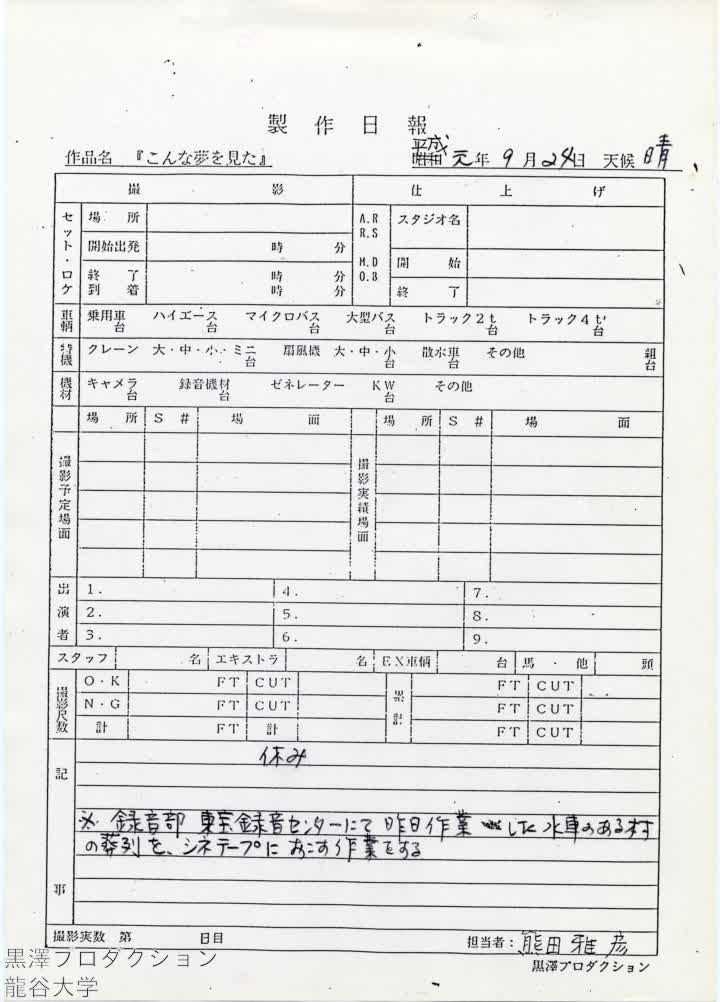 製作日報
作品名 『こんな夢を見た』 平成 昭和 元年 9月24日 天候 晴
撮影 仕上げ
セット・ロケ 場所 A.R R.S M.D O.B スタジオ名
開始出発 時 分 開始
終了到着 時 分 時 分 終了
車輌 乗用車 台 ハイエース 台 マイクロバス 台 大型バス 台 トラック2t 台 トラック4t 台
特機 クレーン 大・中・小・ミニ 台 扇風機 大・中・小 台 散水車 台 その他 組 台
機材 キャメラ 台 録音機材 台 ゼネレーター KW 台 その他
場所 S# 場面 場所 S# 場面
撮影予定場面 撮影実績場面
出演者 1. 4. 7.
2. 5. 8.
3. 6. 9.
スタッフ 名 エキストラ 名 EX車輌 台 馬・他 頭
撮影尺数 O・K FT CUT 累計 FT CUT
N・G FT CUT FT CUT
計 FT 計 FT CUT
記事
休み
※ 録音部 東宝録音センターにて 昨日作業 した 水車のある村
の葬列を、シネテープに おこす作業をする
撮影実数 第 日目 担当者：熊田雅彦
黒澤プロダクション
黒澤プロダクション
龍谷大学